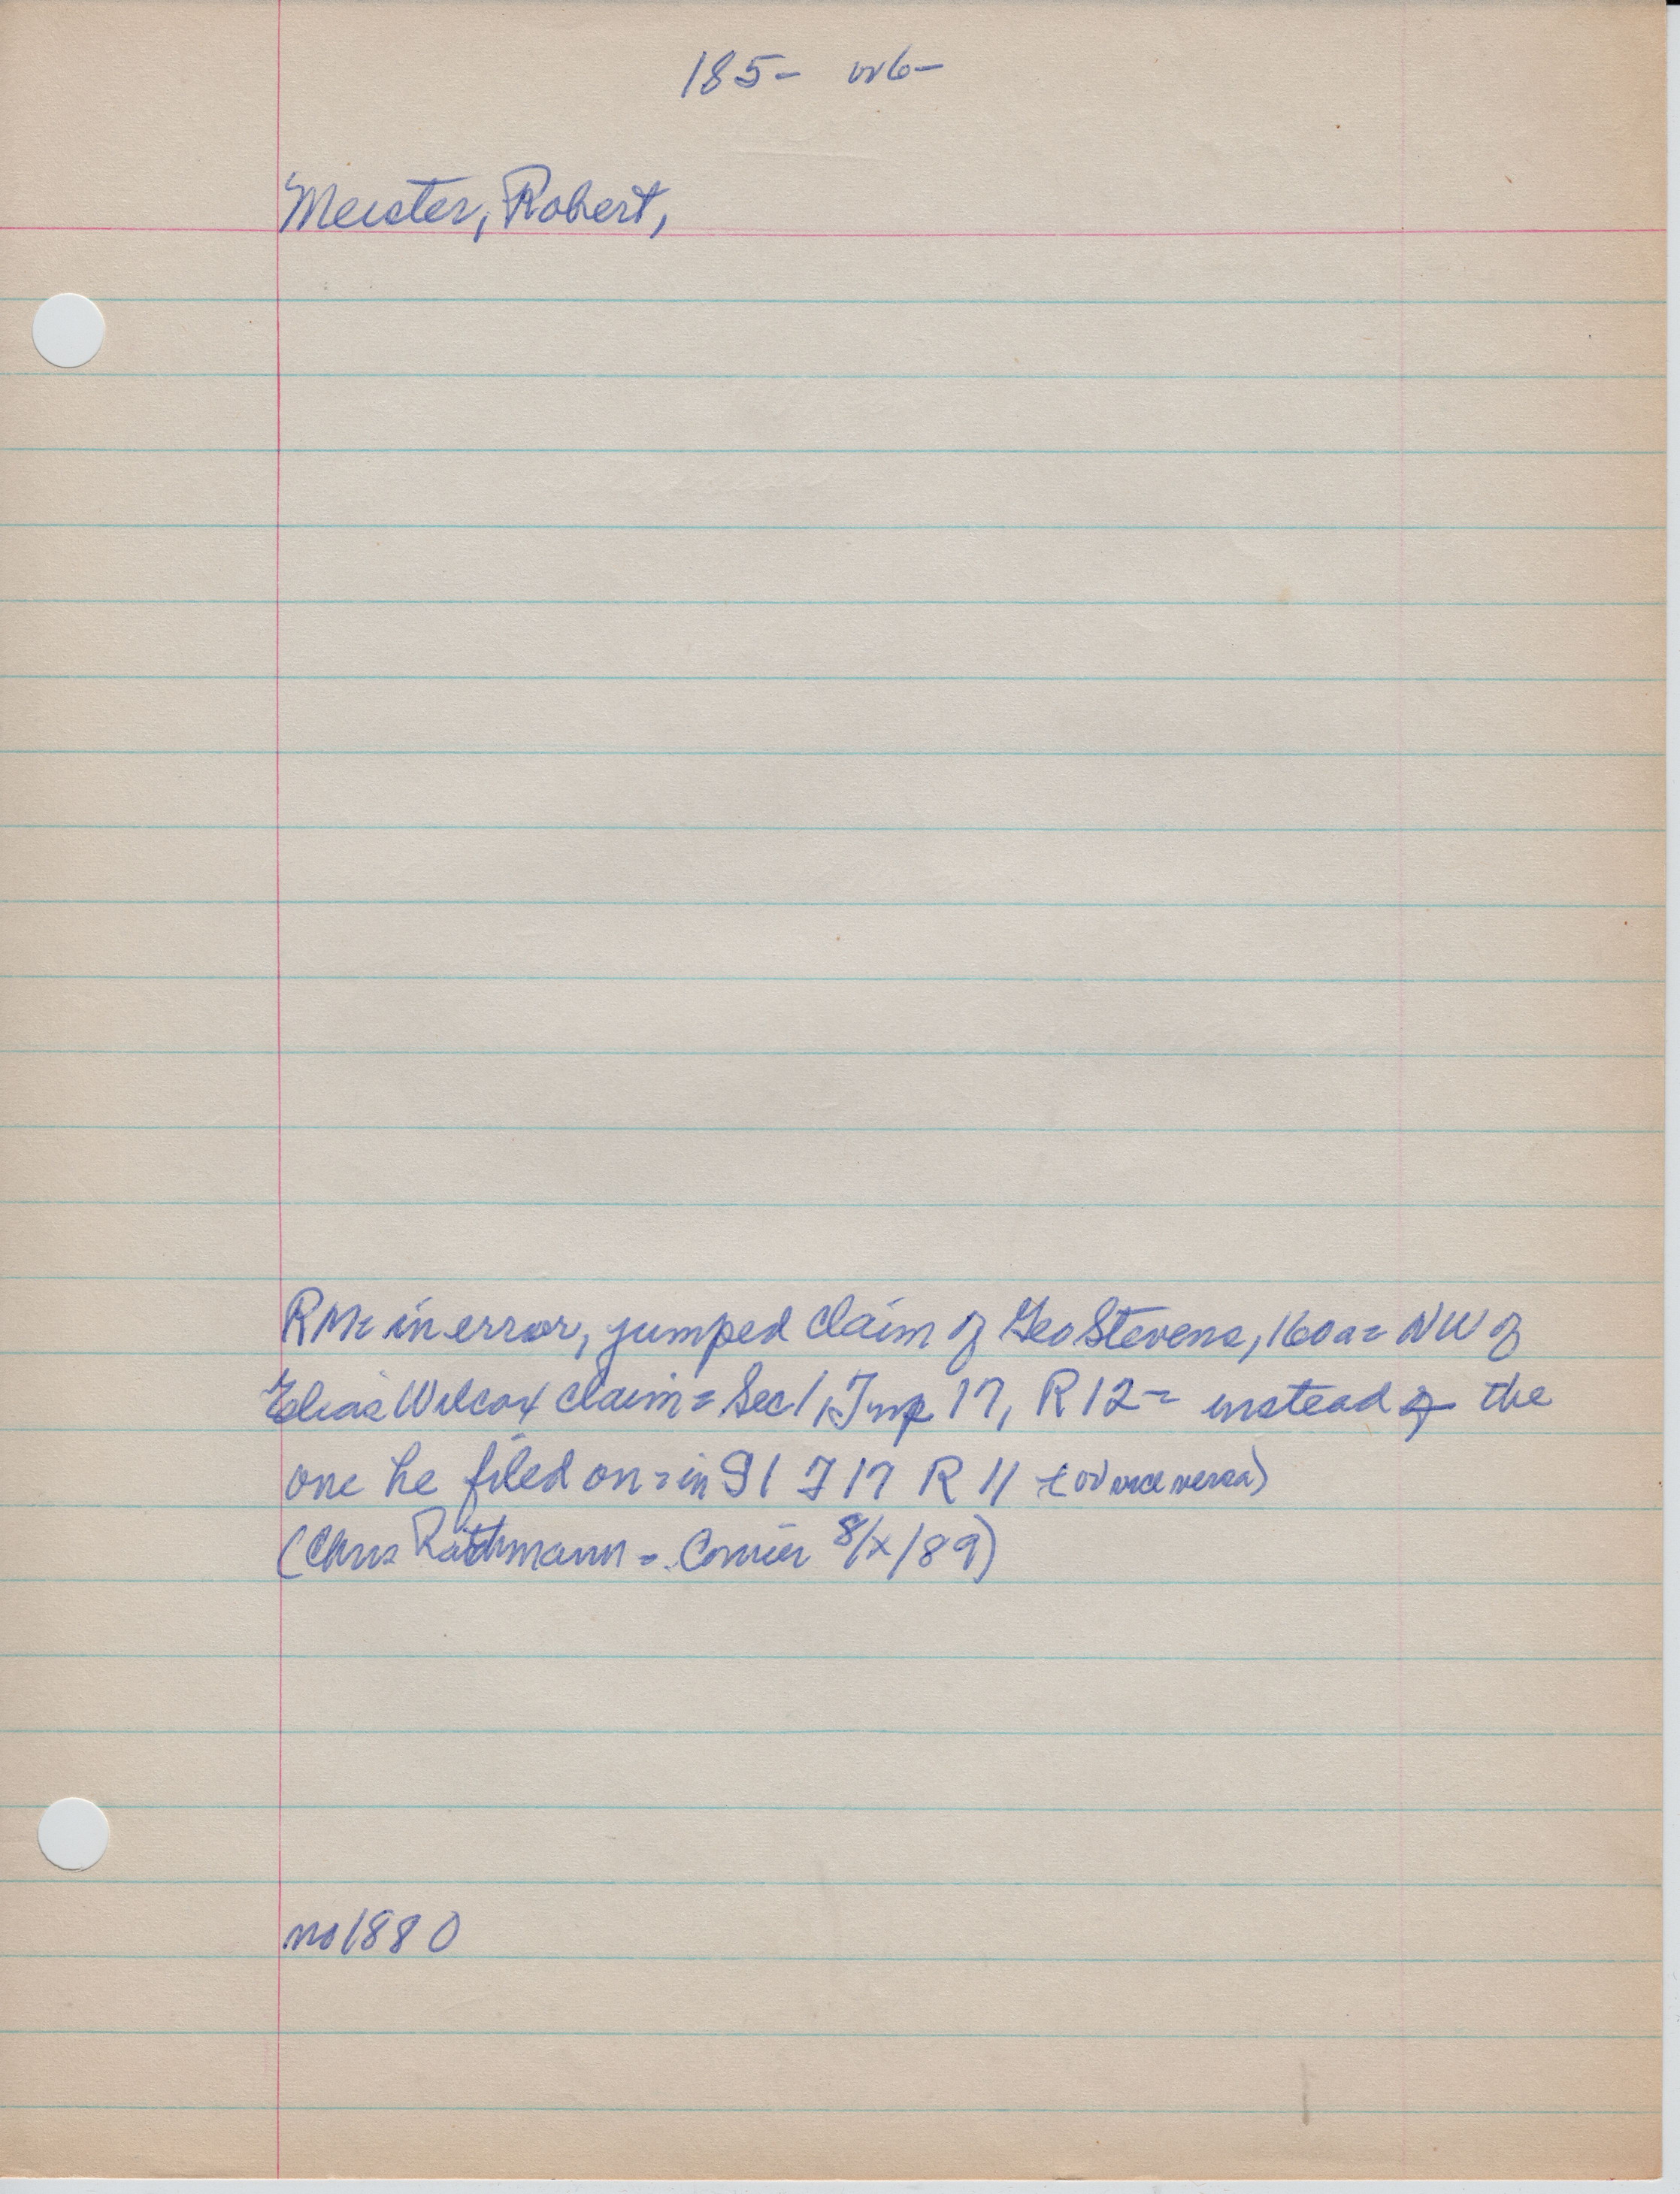 185- or 6-
Meister, Robert,
RM= in error, jumped claim of Geo Stevens, 160a= NW of
Elias Wilcox claim= Sec 1, Twp 17, R 12= instead of the
one he filed on= in S1 T17 R 11 (or vice versa)
(Chris Rathmann =. Courier 8/x/89)
no 1880